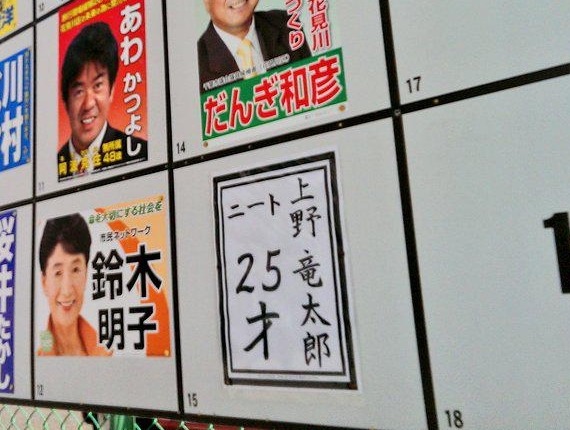 川
村
11
あわ かつよし
無所属
48歳
14
花見川
づくり
だんぎ和彦
17
桜井たかし
12
命を大切にする社会を
市民ネットワーク
鈴木
明子
15
上野 竜太郎
ニート
25
才
18
1